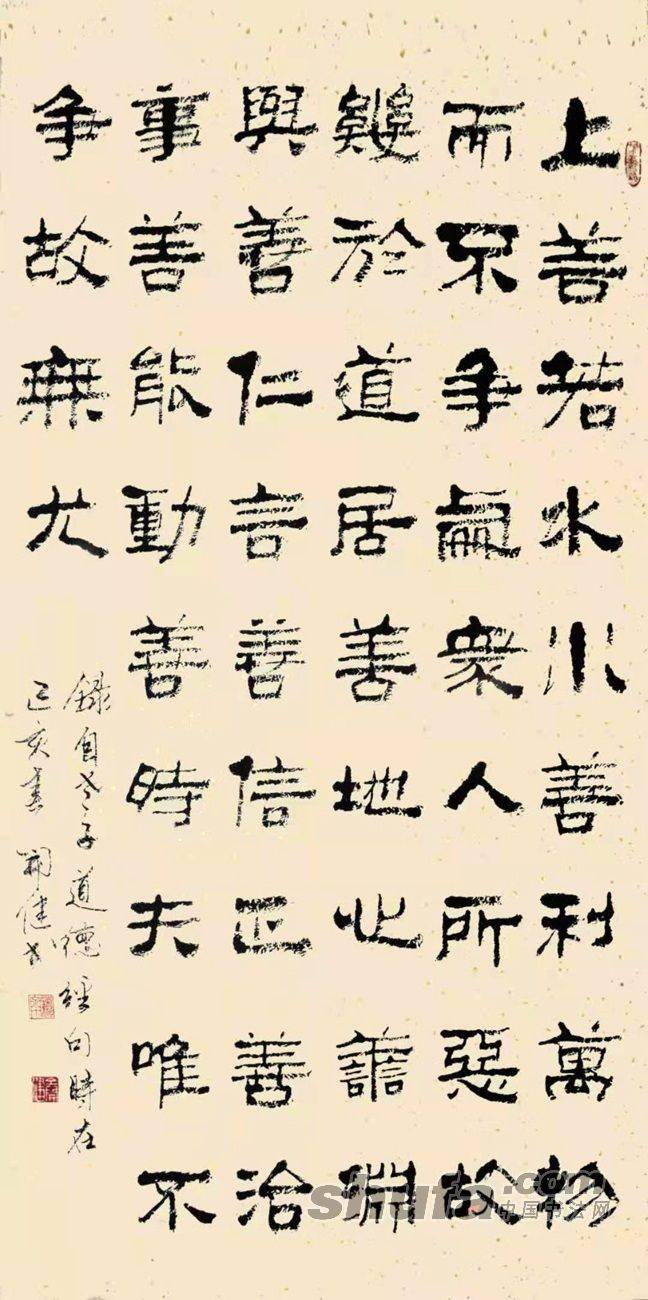 上善若水水善利萬物
而不争處衆人所惡故
幾於道居善地心善淵
與善仁言善信正善治
事善能動善時夫唯不
争故無尤
錄自老子道德經句時在
己亥 健書
shufa.com
中国书法网